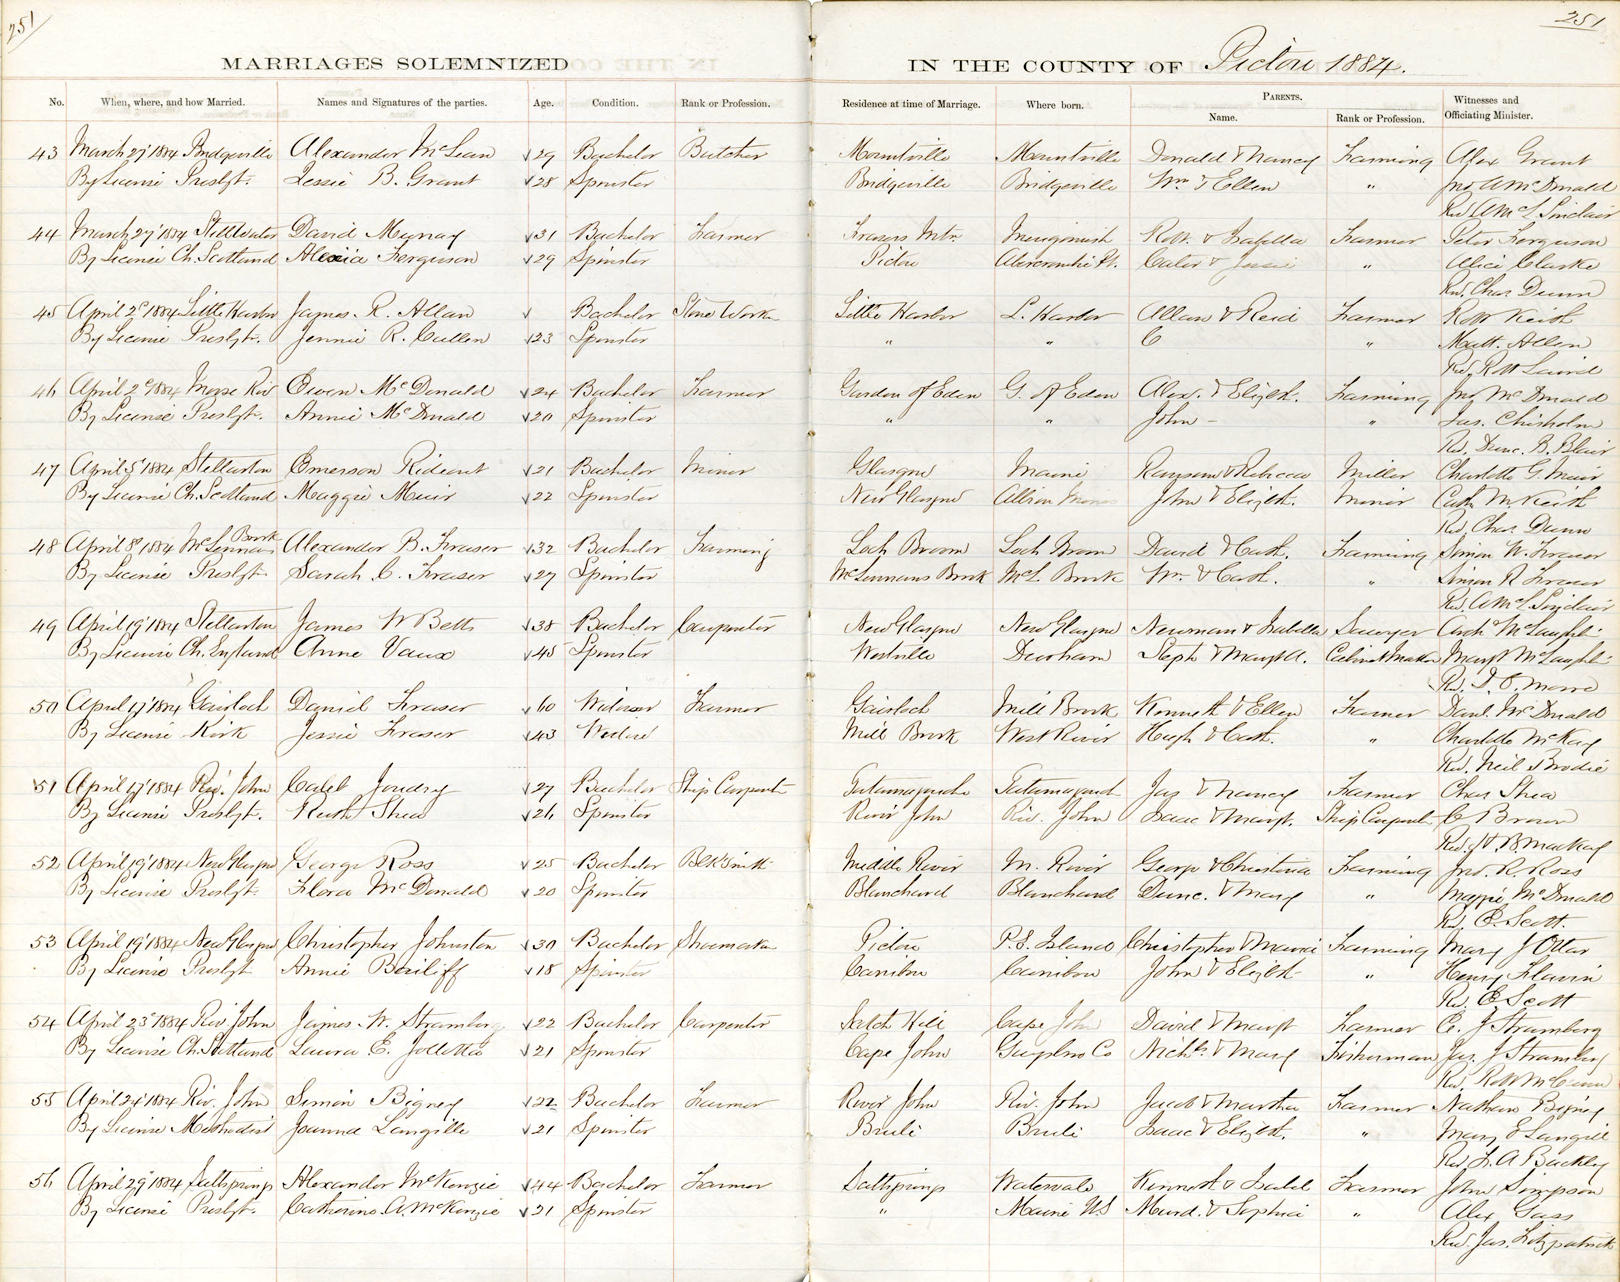 251
251
MARRIAGES SOLEMNIZED IN THE COUNTY OF Pictou 1884.
No. When, where, and how Married. Names and Signatures of the parties. Age. Condition. Rank or Profession. Residence at time of Marriage. Where born. PARENTS. Name. Rank or Profession. Witnesses and Officiating Minister.
43 March 27 1884 Bridgeville Alexander McLean 29 Bachelor Butcher Mountville Mountville Donald & Nancy Farming Alex Grant
By License Presbyt. Jessie B. Grant 28 Spinster Bridgeville Bridgeville Wm & Ellen " Jno A McDonald
Rev A McL Sinclair
44 March 27 1884 Stillwater David Murray 31 Bachelor Farmer Frasers Mtn Merigomish Robt. & Isabella Farmer Peter Ferguson
By License Ch. Scotland Alexia Ferguson 29 Spinster Pictou Abercrombie Pt. & Jessie " Alice Clarke
Rev. Chas Dunn
45 April 2d 1884 Little Harbor James R. Allan Bachelor Stone Worker Little Harbor L. Harbor Allan & Reid Farmer Robt Keith
By License Presbyt. Jennie R. Cullen 23 Spinster " " C " Matt. Allen
Rev. Robt Laird
46 April 2d 1884 Moose Riv Owen McDonald 24 Bachelor Farmer Garden of Eden G. of Eden Alex. & Elizbth. Farming Jno McDonald
By License Presbyt. Annie McDonald 20 Spinster " " John - " Jas. Chisholm
Rev. Dunc. B. Blair
47 April 5 1884 Stellarton Emerson Rideout 21 Bachelor Miner Glasgow Maine Ransom & Rebecca Miller Charlotte G. Muir
By License Ch. Scotland Maggie Muir 22 Spinster New Glasgow Albion Mines John & Elizbth. Miner Cath M. Keith
Rev. Chas. Dunn
48 April 8 1884 McLennans Brook Alexander B. Fraser 32 Bachelor Farming Loch Broom Loch Broom David & Cath. Farming Simon W. Fraser
By License Presbyt. Sarah C. Fraser 27 Spinster McLennans Brook McL. Brook Wm. & Cath. " Simon R Fraser
Rev. A McL Sinclair
49 April 19 1884 Stellarton James W Betts 38 Bachelor Carpenter New Glasgow New Glasgow Newman & Isabella Sawyer Arch McLaughlin
By License Ch. England Anne Vaux 45 Spinster Westville Durham Steph & Margt A. Cabinetmaker Margt McLaughlin
Rev.
50 April 17 1884 Gairloch Daniel Fraser 60 Widower Farmer Gairloch Mill Brook Kenneth & Ellen Farmer Danl. McDonald
By License Kirk Jessie Fraser 43 Widow Mill Brook West River Hugh & Cath. " Charlotte McKay
Rev. Neil Brodie
51 April 17 1884 Riv. John Caleb Joudry 27 Bachelor Ship Carpenter Tatamagouche Tatamagouch Jas & Nancy Farmer Chas Shea
By License Presbyt. Ruth Shea 26 Spinster River John Riv. John Isaac & Margt. Ship Carpenter C Brown
Rev. H B MacKay
52 April 19 1884 New Glasgow George Ross 25 Bachelor Blksmith Middle River M. River George & Christina Farming Jno. R. Ross
By License Presbyt. Flora McDonald 20 Spinster Blanchard Blanchard Dunc. & Mary " Maggie McDonald
Rev. E. Scott.
53 April 19 1884 New Glasgow Christopher Johnston 30 Bachelor Shoemaker Pictou P.E. Island Christopher & Maria Farming Mary J Ottar
By License Presbyt Annie Bailiff 18 Spinster Caribou Caribou John & Elizbth " Henry
Rev. E Scott
54 April 23d 1884 Riv. John James W. Stramberg 22 Bachelor Carpenter Cape John David & Margt Farmer C. J Stramberg
By License Ch. Scotland Laura E. 21 Spinster Cape John Guysboro Co Nichls. & Mary Fisherman Jas. J Stramberg
Rev. Robt McCunn
55 April 24 1884 Riv. John Simon Bigney 22 Bachelor Farmer River John Riv. John Jacob & Martha Farmer Nathan Bigney
By License Methodist Joanna Langille 21 Spinster Brule Brule Isaac & Elizbth. " Mary E Langill
Rev. F. A Buckley
56 April 29 1884 Saltsprings Alexander McKenzie 44 Bachelor Farmer Saltsprings Watervale Kenneth & Isabel Farmer John Simpson
By License Presbyt. Catherine A. McKenzie 21 Spinster " Maine U.S Murd. & Sophia " Alex Gass
Rev. Jas. Fitzpatrick